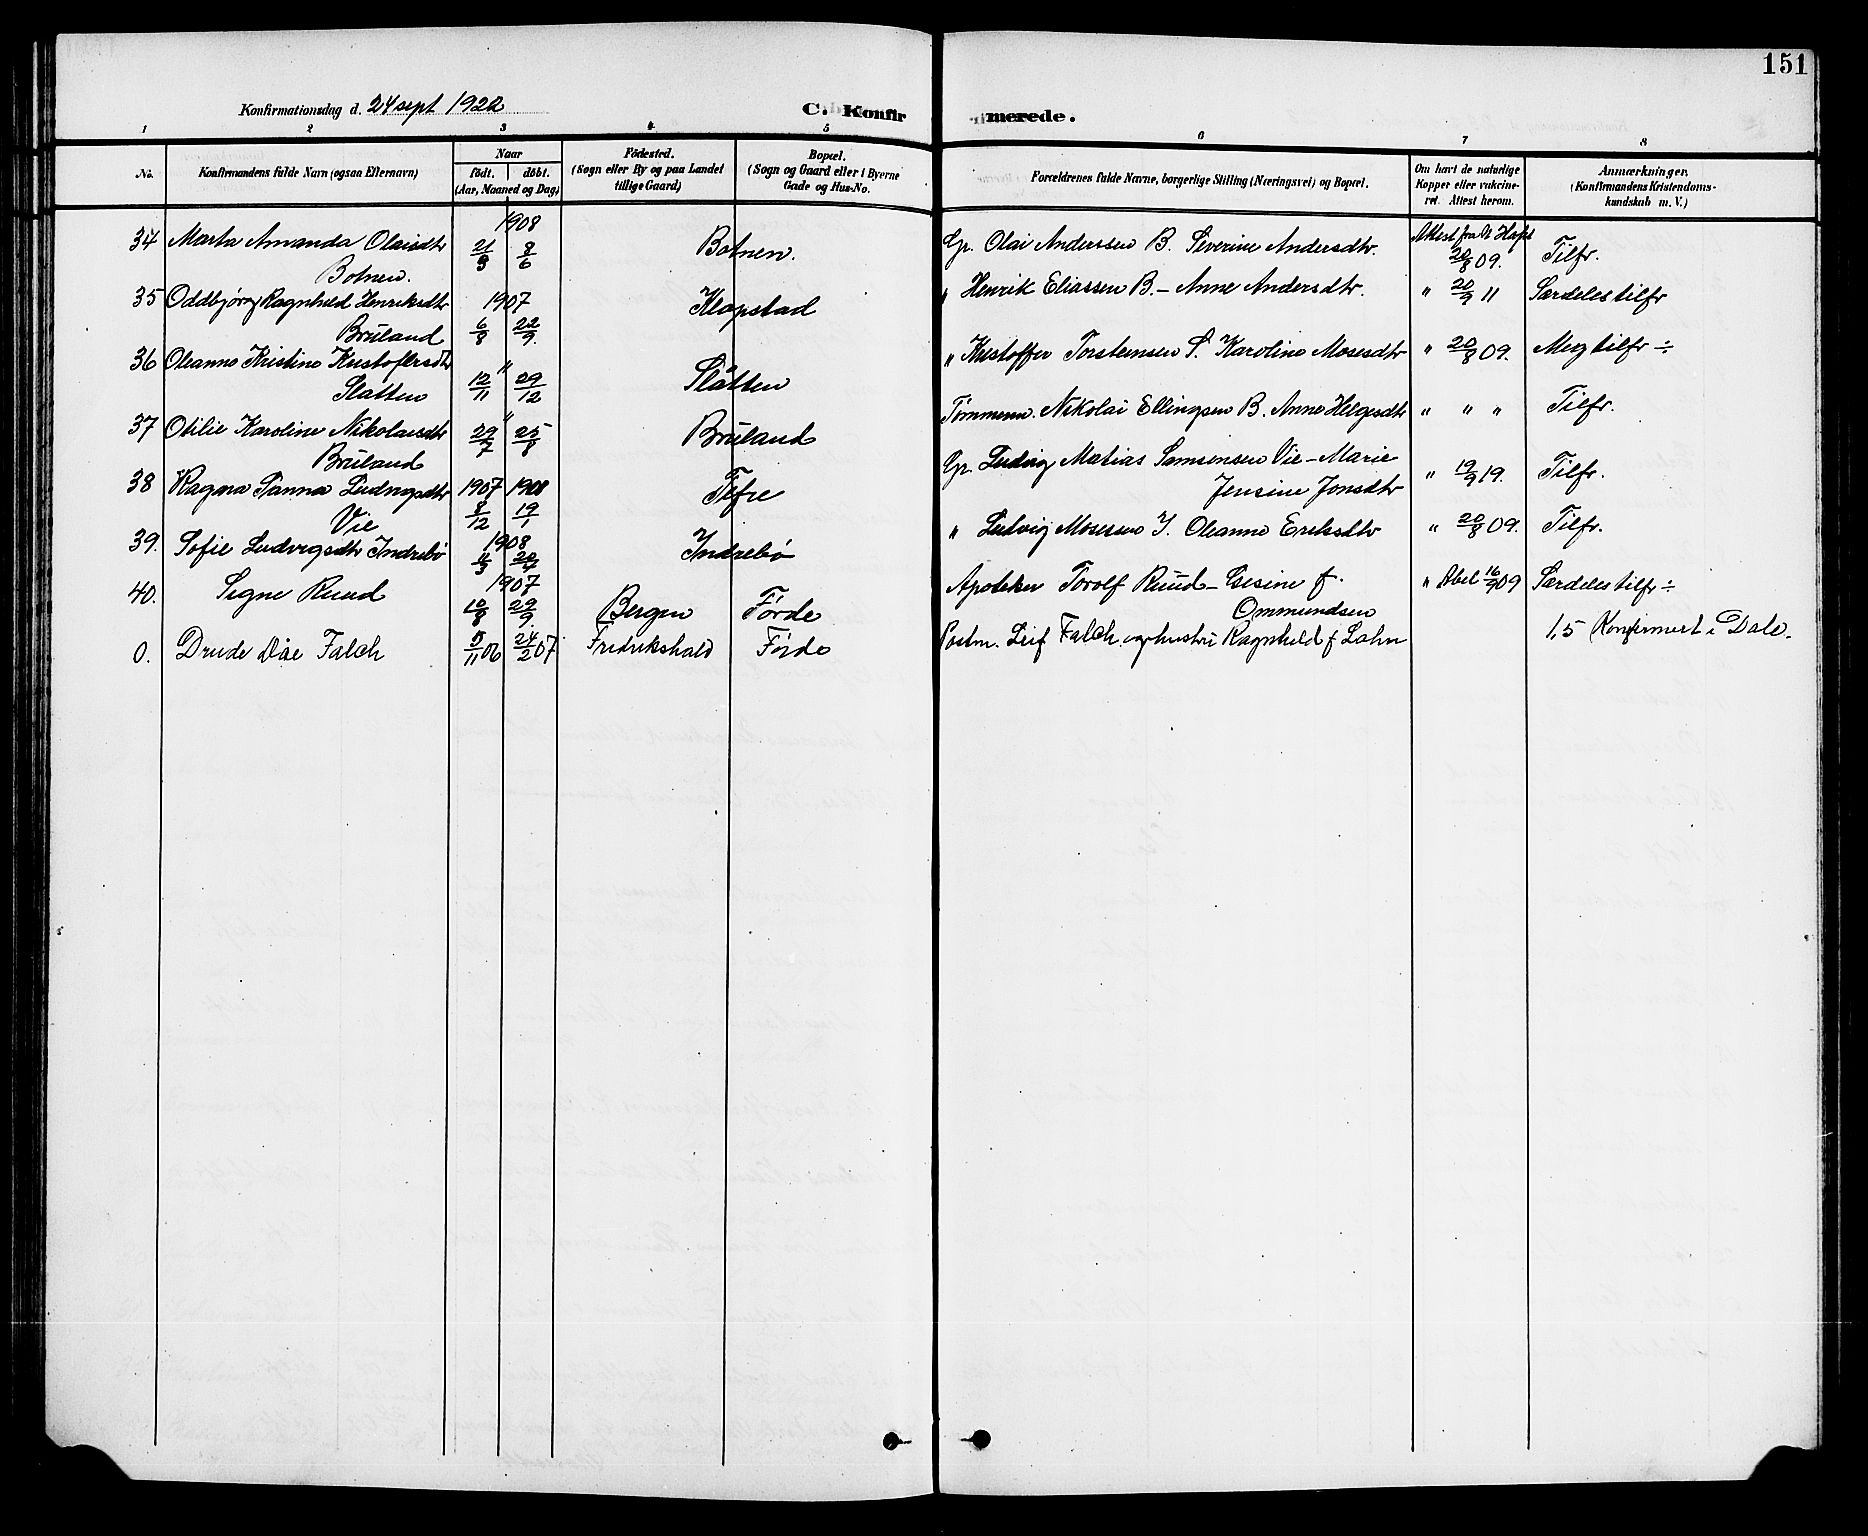 151
Konfirmationsdag d. 24 sept 1922
C. Konfir merede.
1 2 3 4 5 6 7 8
No.
Konfirmandens fulde Navn (ogsaa Efternavn)
Naar
födt. döbt.
(Aar, Maaned og Dag)
Födested.
(Sogn eller By og paa Landet
tillige Gaard)
Bopæl.
(Sogn og Gaard eller i Byerne
Gade og Hus-No.
Forældrenes fulde Navne, borgerlige Stilling (Næringsvei) og Bopæl.
Om havt de naturlige
Kopper eller vakcine-
ret. Attest herom.
Anmærkninger.
(Konfirmandens Kristendoms-
kundskab m. V.)
1908
34 Marta Amanda Olaisdtr 21/3 8/6 Botnen. Gp. Olai Anderssen B. Severine Andersdtr. Attest fra 20/8 09. Tilfr.
Botnen.
35 Oddbjørg Ragnhild Henriksdtr 1907 Klopstad " Henrik Eliassen B. – Anne Andersdtr. " 20/9 11 Særdeles tilfr
Bruland 6/8 22/9.
36 Oleanna Kristine Kristoffersdtr " Slåtten " Kristoffer Torsteinsen S. Karoline Mosesdtr " 20/8 09. Meg tilfr ÷
Slåtten 12/11 29/12
37 Otilie Karoline Nikolaisdtr " 29/7 25/8 Bruland Tømmerm. Nikolai Ellingsen B. Anne Helgesdtr " " " Tilfr.
Bruland
38 Ragna Sanna Ludvigsdtr 1907 1908 Tefre Gp. Ludvig Matias Samsonsen Vie – Marie " 19/9 19. Tilfr.
Vie 8/12 19/1 Jensine Jonsdtr
39. Sofie Ludvigsdtr Indrebø 1908 11/3 20/4 Indrebø " Ludvig Mosessen I. Oleanne Eriksdtr " 20/8 09. Tilfr.
40. Signe Ruud 1907 10/8 29/9. Bergen Førde Apoteker Torolf Ruud – Gesine f. " Abel 16/9 09 Særdeles tilfr ÷
Ommundsen
0. Drude Falch 5/11 06 24/2 07 Fredrikshald Førde Postm. Leif Falch og hustru Ragnhild f. Lahn 1,5 Konfirmert i Dale.